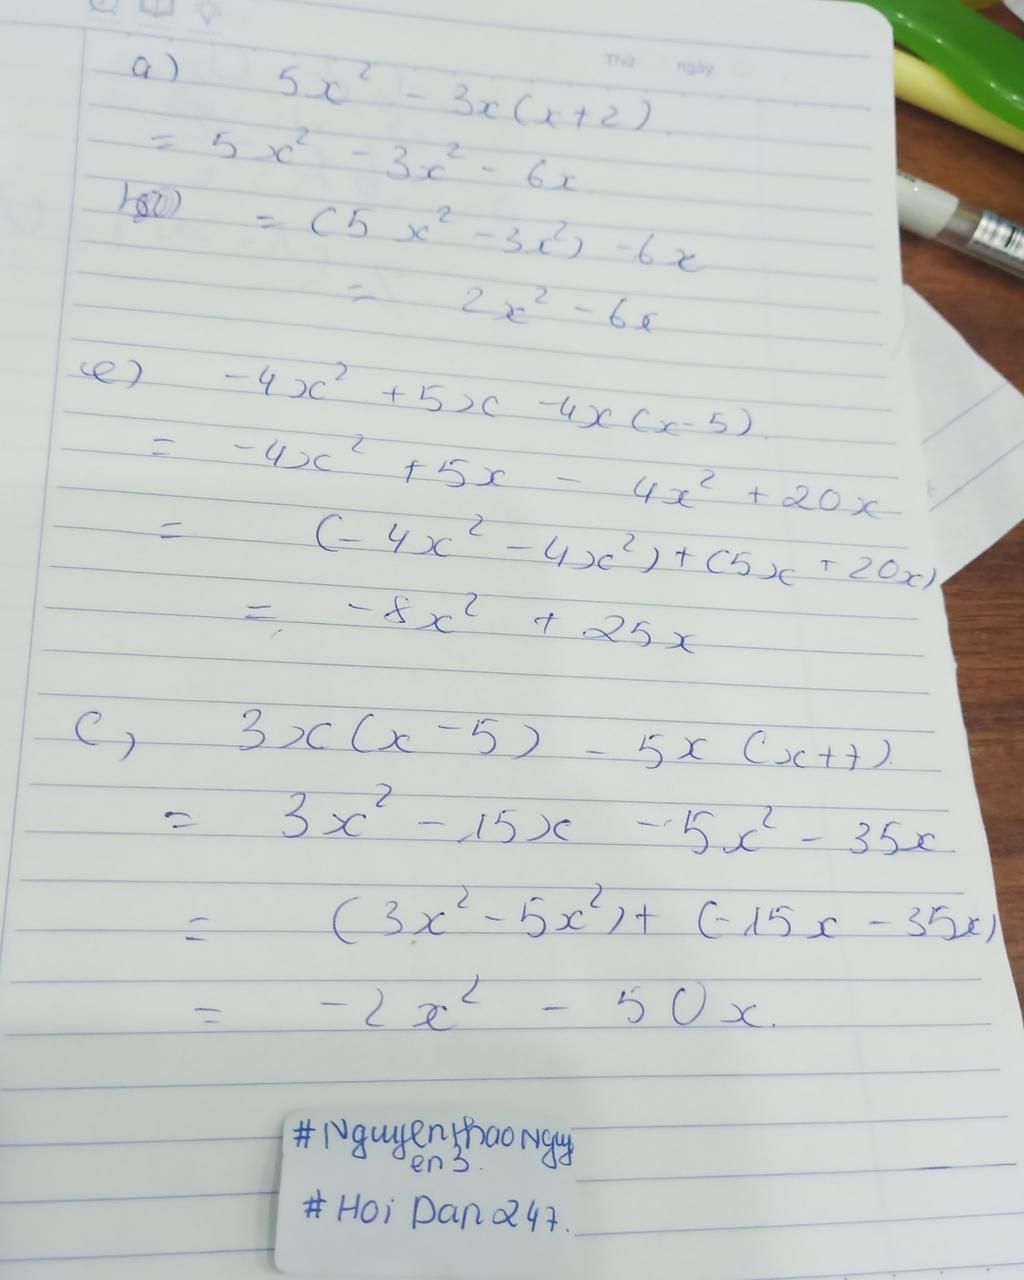 Thứ ngày
a) 5x² - 3x(x+2)
= 5x² - 3x² - 6x
= (5x² - 3x²) - 6x
= 2x² - 6x
e) -4x² + 5x - 4x(x-5)
= -4x² + 5x - 4x² + 20x
= (-4x² - 4x²) + (5x + 20x)
= -8x² + 25x
c, 3x(x-5) - 5x(x+7)
= 3x² - 15x - 5x² - 35x
= (3x² - 5x²) + (-15x - 35x)
= -2x² - 50x.
#NguyenthaoNguy
en3.
#Hoi Dan 247.